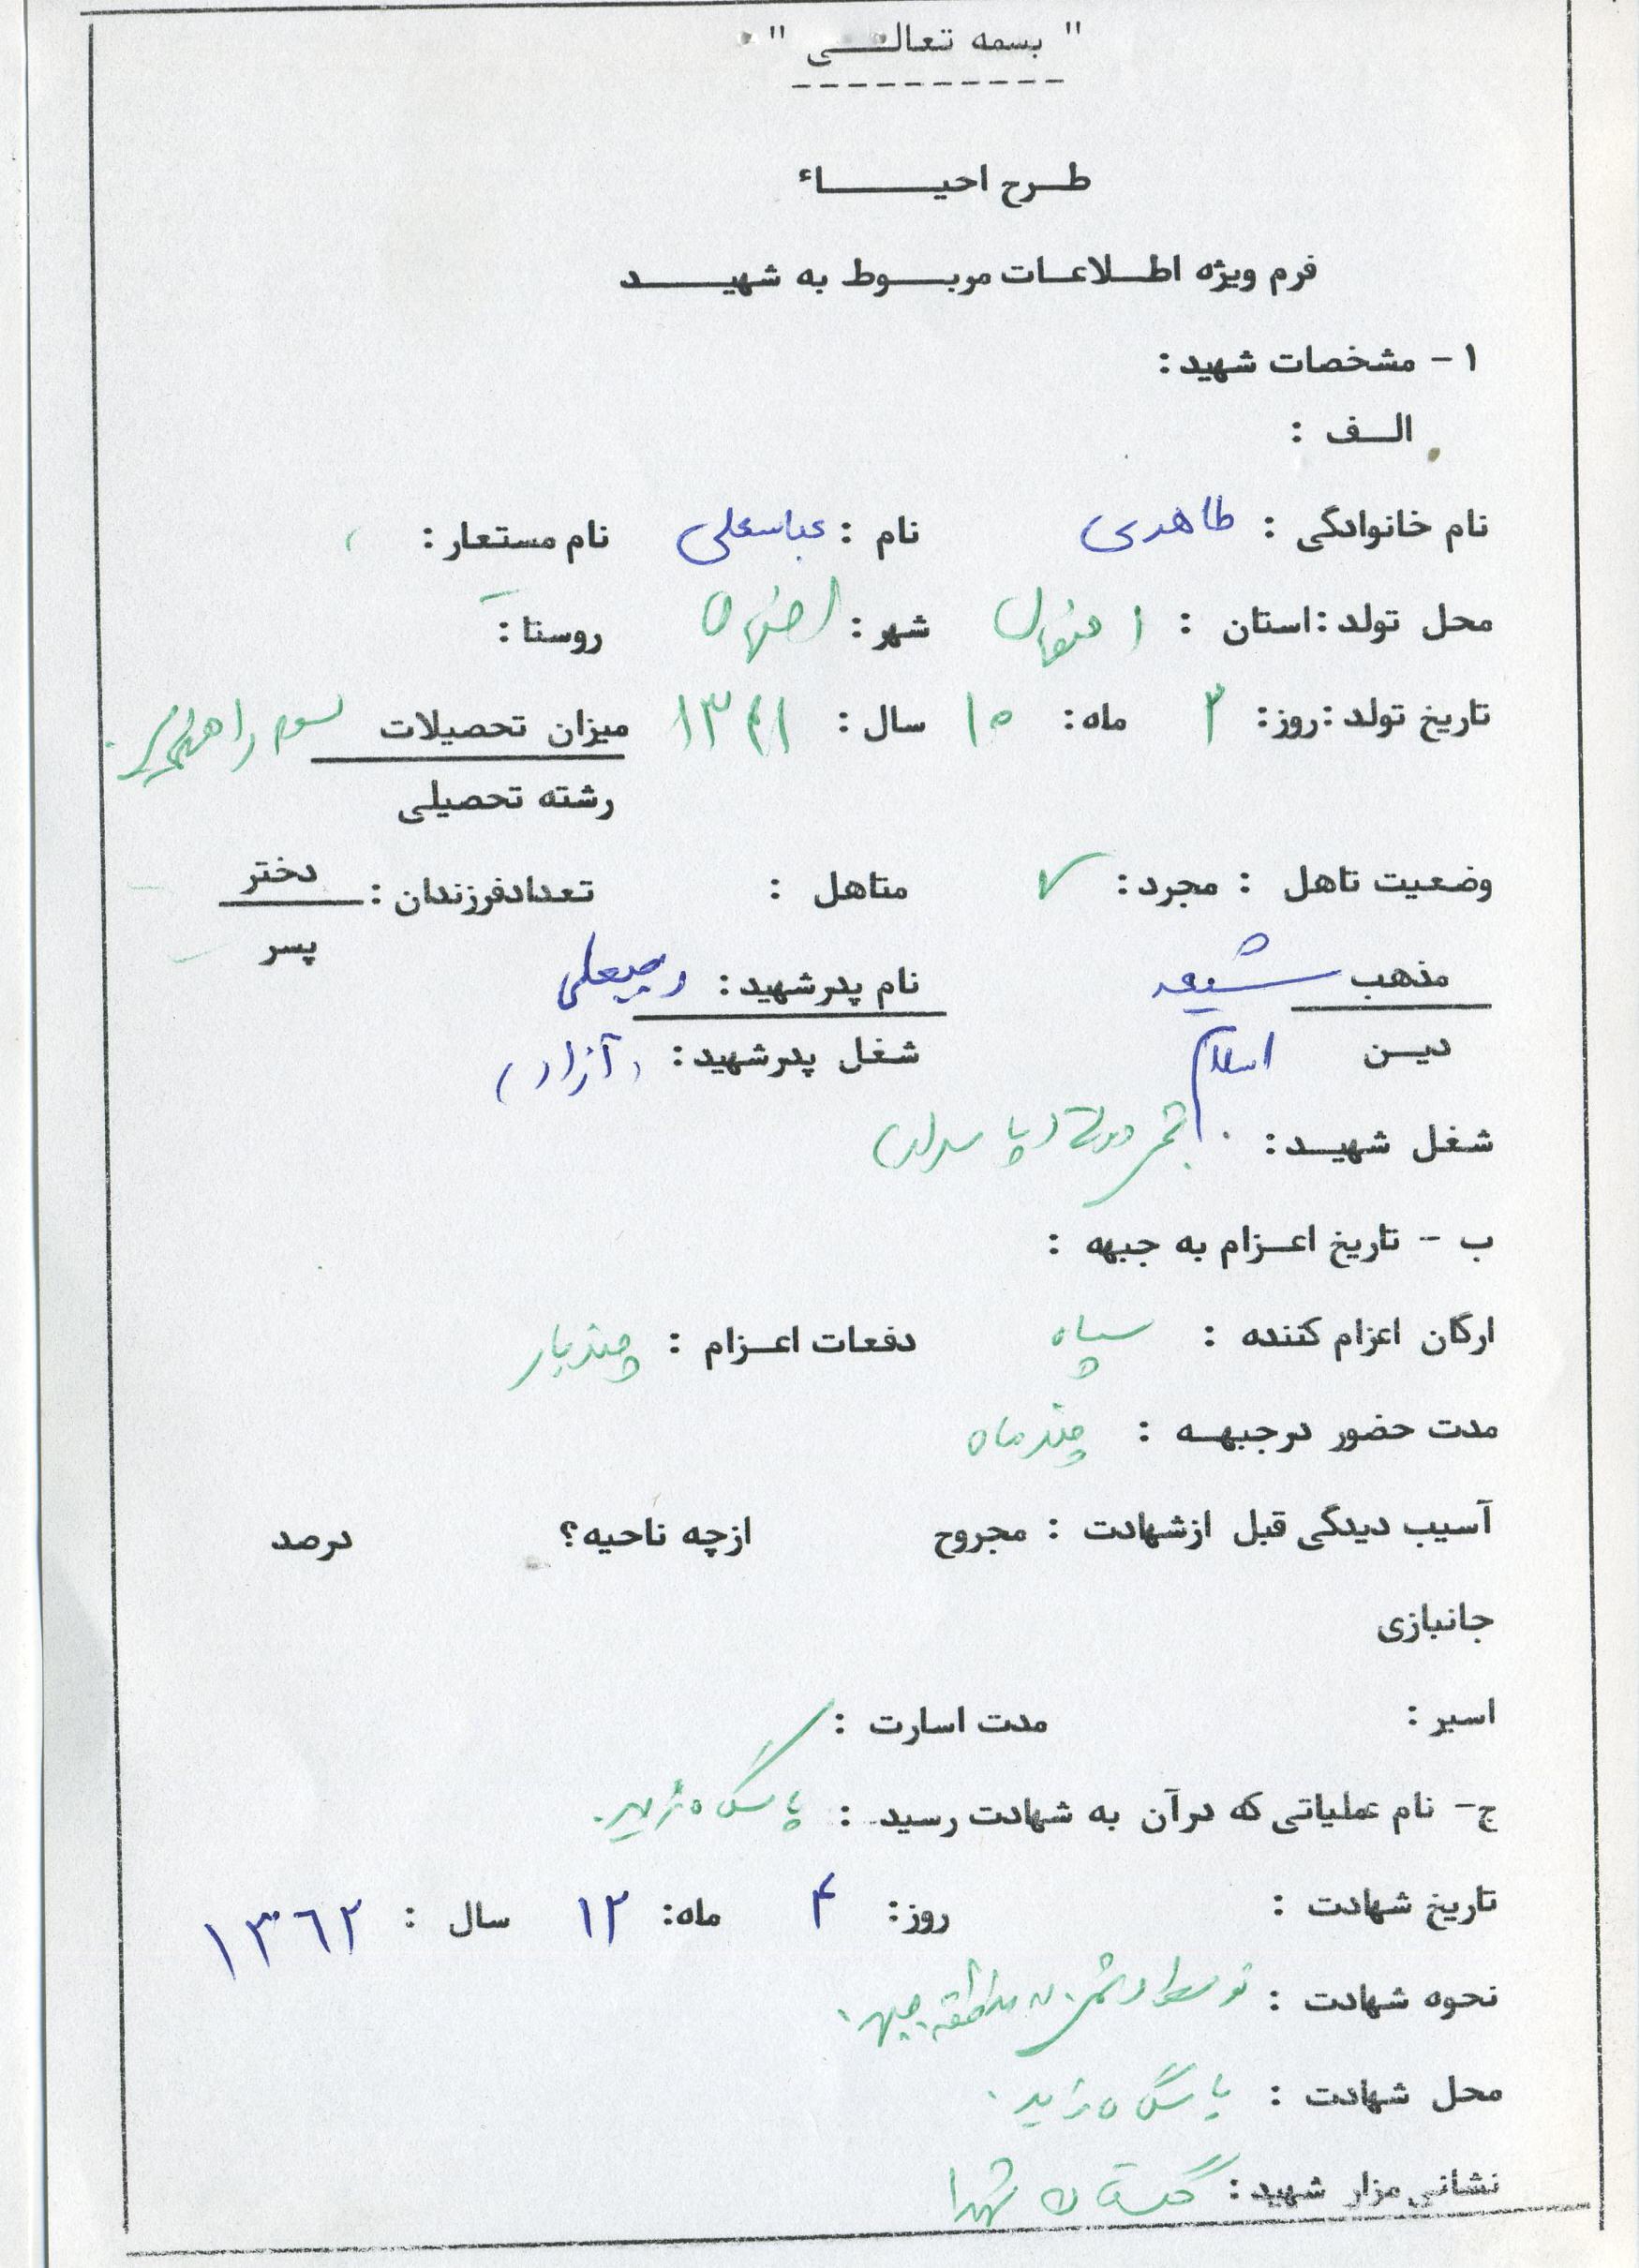 " بسمه تعالی "
طرح احیاء
فرم ویژه اطلاعات مربوط به شهید
۱ - مشخصات شهید:
الف :
نام خانوادگی : طاهری نام : عباسعلی نام مستعار:
محل تولد: استان : اصفهان شهر: اصفهان روستا:
تاریخ تولد: روز: ۳ ماه: ۱۰ سال: ۱۳۴۱ میزان تحصیلات سوم راهنمایی
رشته تحصیلی
وضعیت تاهل : مجرد: ✓ متاهل : تعدادفرزندان: دختر
پسر
مذهب شیعه نام پدرشهید: رجبعلی
دین اسلام شغل پدرشهید: (آزاد)
شغل شهید: پاسدار
ب - تاریخ اعزام به جبهه :
ارگان اعزام کننده : سپاه دفعات اعزام : چندبار
مدت حضور درجبهه : چندماه
آسیب دیدگی قبل ازشهادت : مجروح ازچه ناحیه؟ درصد
جانبازی
اسیر: مدت اسارت :
ج- نام عملیاتی که درآن به شهادت رسید : پاسگاه زید.
تاریخ شهادت : روز: ۴ ماه: ۱۲ سال : ۱۳۶۲
نحوه شهادت : توسط دشمن در منطقه جبهه.
محل شهادت : پاسگاه زید.
نشانی مزار شهید: گلستان شهدا